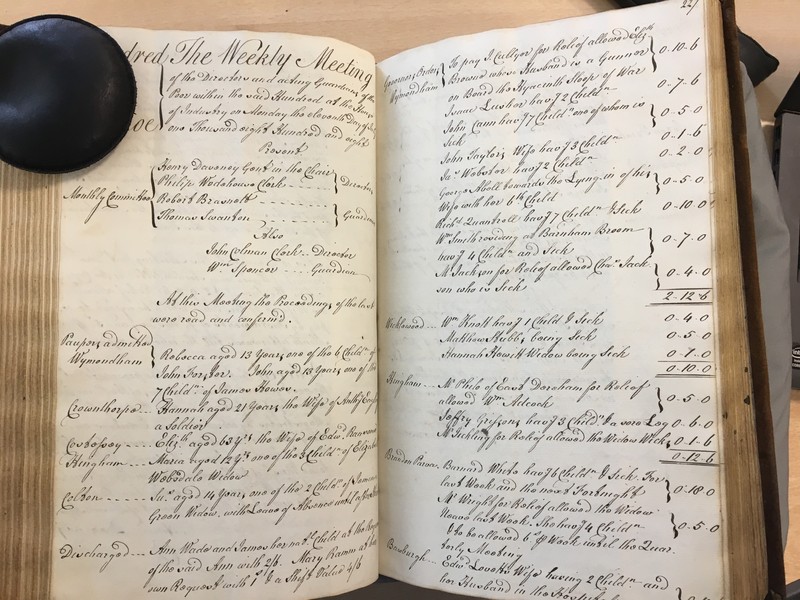 dred The Weekly Meeting
of the Directors and acting Guardians of the
Poor within the said Hundred at the House
of Industry on Monday the eleventh Day of
one Thousand eight Hundred and eight
Present
Henry Davoney Gent in the Chair
Philip Wodehouse Clerk
Director
Monthly Committee
Robert Brasnett
Thomas Swanton
Guardian
Also
John Colman Clerk .. Director
Wm Spencer .... Guardian
At this Meeting the Proceedings of the last
were read and confirmd.
Paupers admitted
Wymondham
Rebecca aged 13 Years, one of the 6 Childn of
John Foster. John, aged 13 Years, one of the
7 Childn of James Howes.
Crownthorpe ... Hannah aged 21 Years, the Wife of
a Soldier.
Costessey .... Elizth aged 63 Yrs the Wife of Edwd
Hingham .... Maria aged 12 Yrs one of the 3 Childn of Elizabeth
Widow
Colton .... Jas aged 14 Years, one of the 2 Childn of
Green Widow, with Leave of Absence until
Discharged ... Ann Wade and James her nat Child at the Request
of the said Ann with 2/6. Mary at her
own Request with 1s & a Shift Value 4/6
221
Governors Orders
Wymondham
To pay J. Cullyer for Relief allowed Elizth
Brown whose Husband is a Gunner
on Board the Hyacinth Sloop of War
0-10-6
Isaac Lusher havg 2 Childn
0-7-6
John Cann havg 7 Childn one of whom is
Sick
0-5-0
John Taylor's Wife havg 3 Childn
0-1-6
Jas Webster havg 2 Childn
0-2-0
George Abell towards the Lying in of his
Wife with her 6th Child
0-5-0
Richd Quantrell havg 7 Childn & Sick
0-10-0
Wm Smith residing at Barnham Broom
havg 4 Childn and Sick
0-7-0
Mr Jackson for Relief allowed Chas Jackson
who is Sick
0-4-0
2-12-6
Wicklewood ... Wm Knott havg 1 Child & Sick
0-4-0
Matthew Hubbs being Sick
0-5-0
Hannah Howlett Widow being Sick
0-1-0
0-10-0
Hingham ... Mr Philo of East Dereham for Relief
allowed Wm Adcock
0-5-0
Jeffry Grixsons havg 3 Childn & a sore Leg
0-6-0
Mr Jickling for Relief allowed the Widow Wick
0-1-6
0-12-6
Brandon Parva
Barnard White havg 6 Childn & Sick For
last Week and the next Fortnight
0-18-0
Mr Wright for Relief allowed the Widow
last Week. She havg 4 Childn
& to be allowed 6s P Week until the Quarterly
Meeting
0-5-0
Bawburgh ... Edwd Lovick's Wife having 2 Childn and
her Husband in the